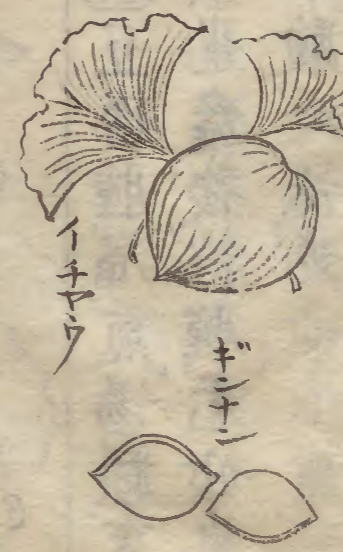 イチヤウ
ギンナン